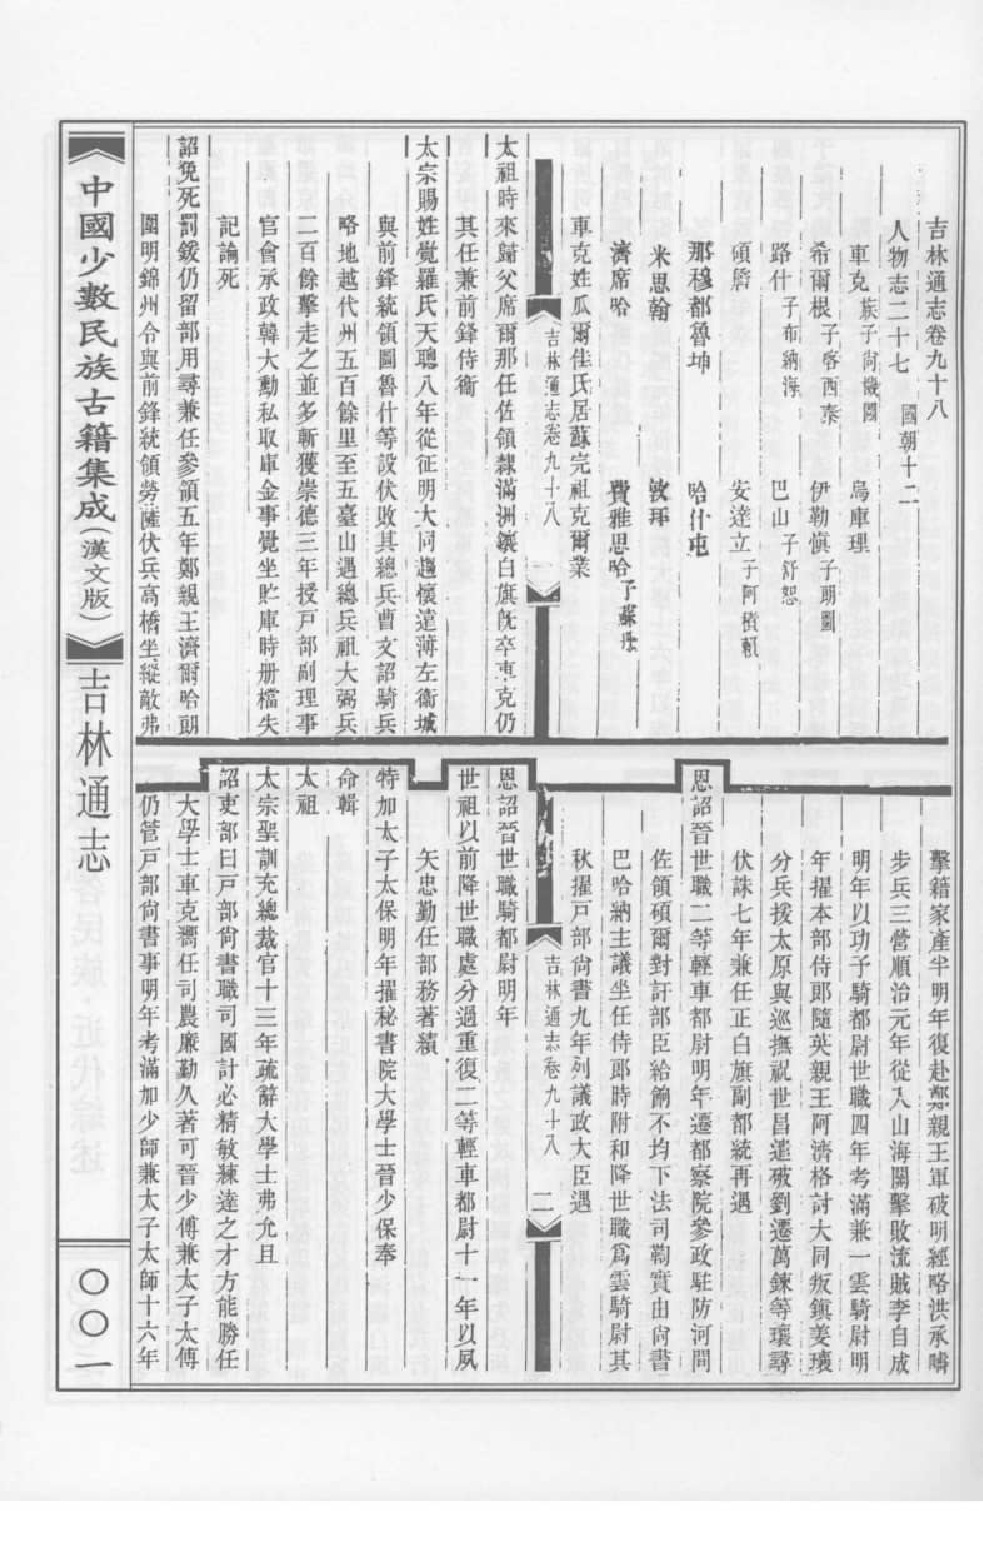 吉林通志卷九十八
人物志二十七 國朝十二
車克 族子尚機圖 烏庫理
希爾根 子喀西泰 伊勒愼 子朋圖
路什 子布納海 巴山 子舒恕
碩詹 安達立 子阿積賴
那穆都魯坤 哈什屯
米思翰
濟席哈 費雅思哈 子蘇丹
車克姓瓜爾佳氏居蘇完祖克爾業
吉林通志卷九十八 一
太祖時來歸父席爾那任佐領隸滿洲鑲白旗旣卒車克仍
其任兼前鋒侍衞
太宗賜姓覺羅氏天聰八年從征明大同趨懷遠薄左衞城
與前鋒統領圖魯什等設伏敗其總兵曹文詔騎兵
略地越代州五百餘里至五臺山遇總兵祖大弼兵
二百餘擊走之並多斬獲崇德三年授戸部副理事
官會承政韓大勳私取庫金事覺坐貯庫時册檔失
記論死
詔免死罰鍰仍留部用尋兼任參領五年鄭親王濟爾哈朗
圍明錦州令與前鋒統領勞薩伏兵高橋坐縱敵弗
擊籍家產半明年復赴鄭親王軍破明經略洪承疇
步兵三營順治元年從入山海關擊敗流賊李自成
明年以功予騎都尉世職四年考滿兼一雲騎尉明
年擢本部侍郎隨英親王阿濟格討大同叛鎭姜瓖
分兵援太原與巡撫祝世昌遣破劉遷萬鍊等瓖尋
伏誅七年兼任正白旗副都統再遇
恩詔晉世職二等輕車都尉明年遷都察院參政駐防河間
佐領碩爾對訐部臣給餉不均下法司勒實由尙書
巴哈納主議坐任侍郎時附和降世職爲雲騎尉其
秋擢戸部尙書九年列議政大臣遇
吉林通志卷九十八 二
恩詔晉世職騎都尉明年
世祖以前降世職處分過重復二等輕車都尉十一年以夙
矢忠勤任部務著績
特加太子太保明年擢秘書院大學士晉少保奉
命輯
太祖
太宗聖訓充總裁官十三年疏辭大學士弗允且
詔吏部曰戸部尙書職司國計必精敏練達之才方能勝任
大學士車克嚮任司農廉勤久著可晉少傅兼太子太傅
仍管戸部尙書事明年考滿加少師兼太子太師十六年
中國少數民族古籍集成（漢文版）
吉林通志
〇〇一